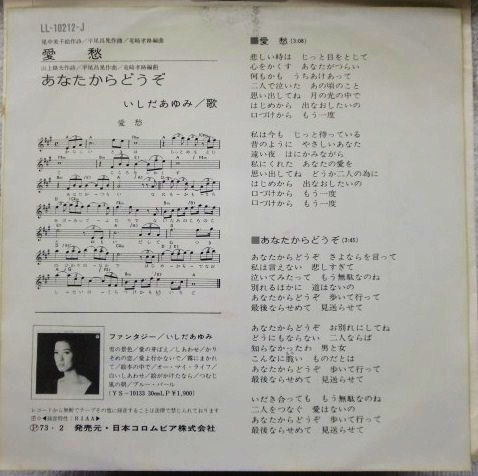 LL-10212-J
尾中美千絵作詩/平尾昌晃作曲/竜崎孝路編曲
愛 愁
山上路夫作詩/平尾昌晃作曲/竜崎孝路編曲
あなたからどうぞ
いしだあゆみ/歌
愛 愁
ファンタジー/いしだあゆみ
雪の景色/愛の芽ばえ/しあわせ/かり
そめの恋/愛よ行かないで/霧にまかれ
て/絵本の中で/オー・マイ・ライフ/
白いしあわせ/絵がかけたなら/つむじ
風の朝/ブルー・パール
(YS-10133 30cmLP ¥1,900)
レコードから無断でテープその他に録音することは法律で禁じられております
(録音特性:RIAA)
Ⓟ73・2 発売元・日本コロムビア株式会社
■愛 愁 (3:08)
悲しい時は じっと目をとじて
心をかくす あなたがつらい
何もかも うちあけあって
二人で泣いた あの頃のこと
思い出してね 月の光の中で
はじめから 出なおしたいの
口づけから もう一度
私は今も じっと待っている
昔のように やさしいあなた
遠い夜 はにかみながら
私にくれた あなたの愛を
思い出してね どうか二人の為に
はじめから 出なおしたいの
口づけから もう一度
■あなたからどうぞ (3:45)
あなたからどうぞ さよならを言って
私は言えない 悲しすぎて
泣いてみたって もう無駄なのね
別れるほかに 道はないの
あなたからどうぞ 歩いて行って
最後ならせめて 見送らせて
あなたからどうぞ お別れにしてね
どうにもならない 二人ならば
知らなかったわ 男と女
こんなに脆い ものだとは
あなたからどうぞ 歩いて行って
最後ならせめて 見送らせて
いだき合っても もう無駄なのね
二人をつなぐ 愛はないの
あなたからどうぞ 歩いて行って
最後ならせめて 見送らせて